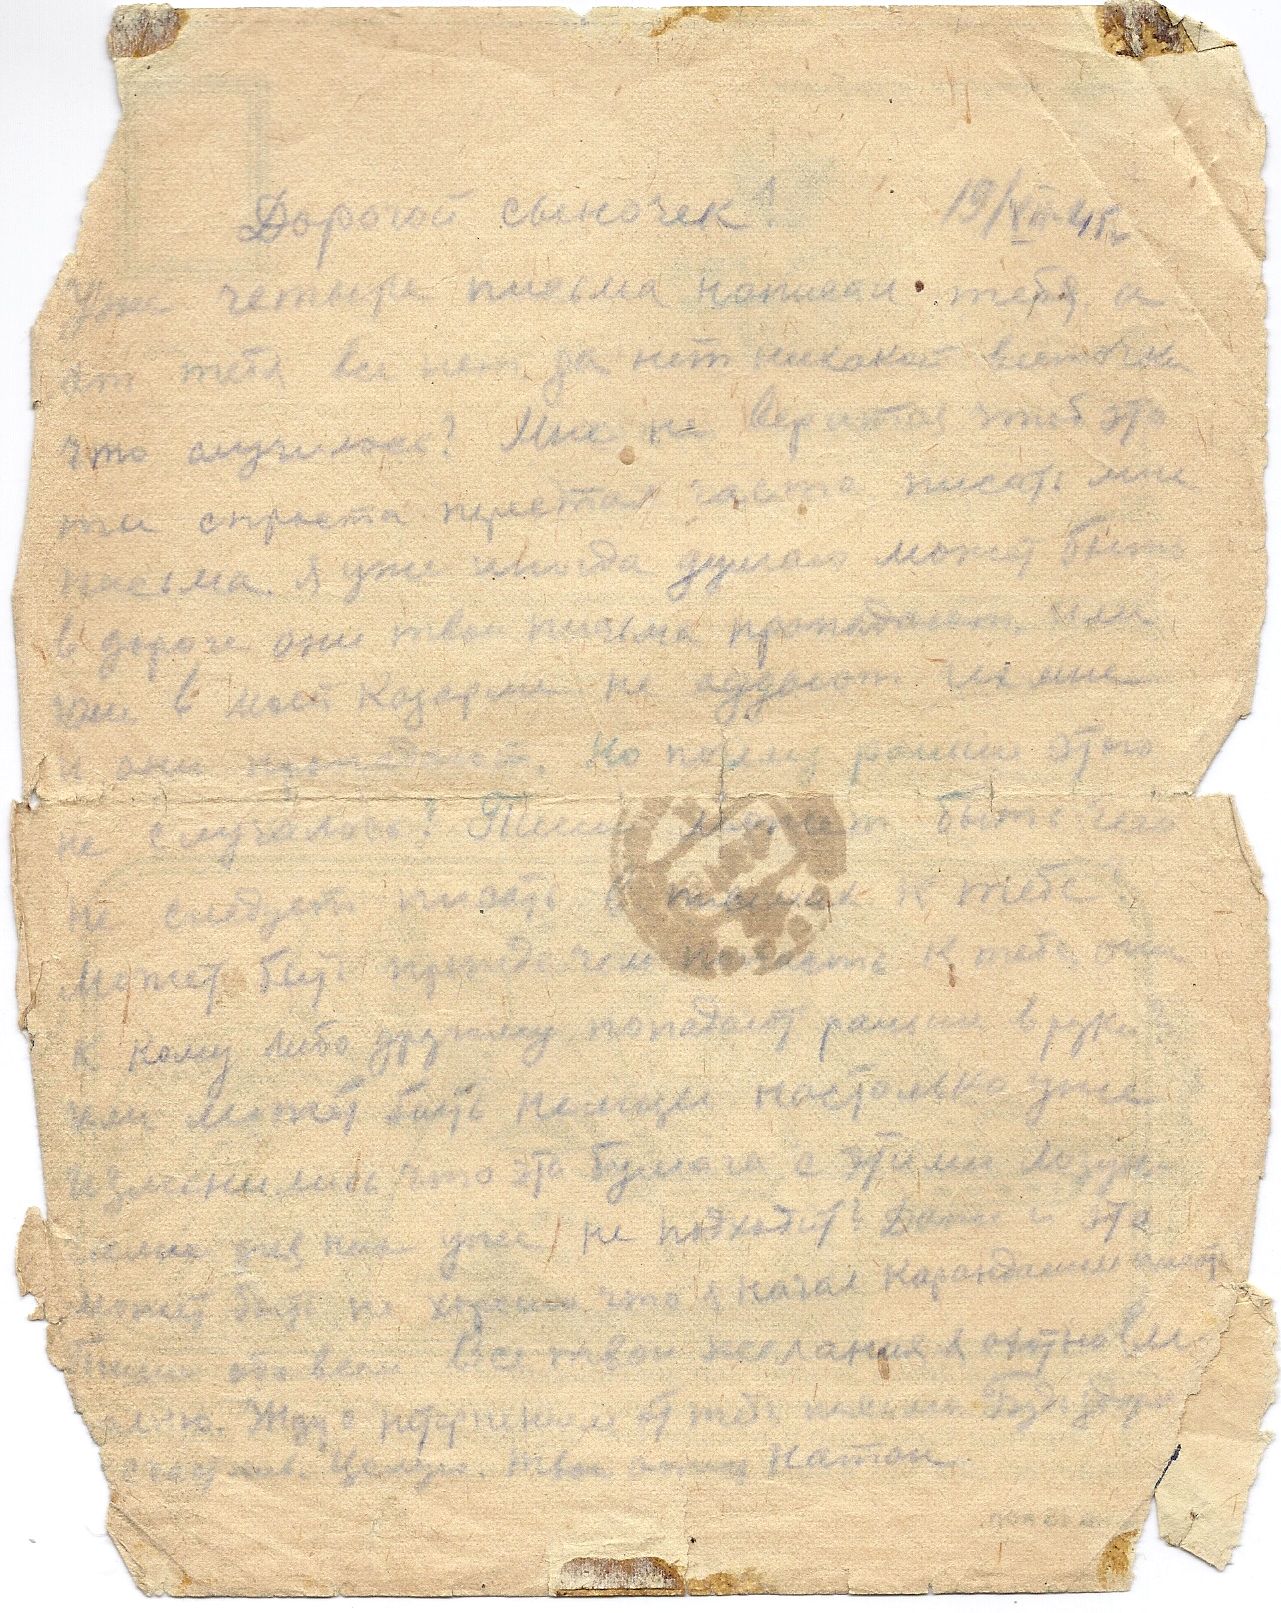 Дорогой сыночек! 19/VIII-45г.
Уже четыре письма написал тебя а
от тебя все нет да нет никакой весточки
что случилось? Мне не верится чтоб это
ты спроста перестал часто писать мне
письма. Я уже иногда думаю может быть
в дороге они твои письма пропадают. Или
или в моей казарме не отдают их мне
и они пропадают. Но почему раньше этого
не случалось? Пиши может быть чего
не следует писать в письмах к тебе?
Может быть прежде чем попасть к тебе они
к кому либо другому попадают раньше в руки?
или может быть немцы настолько уже
изменились что эта бумага с этими лозун-
уже не подходит? Даже и это
может быть не хорошо что я начал карандашом писать
Пиши обо всем все твои желания я охотно
Жду с нетерпением от тебя письма. Будь здоров
счастлив. Целую. Твой Натан.